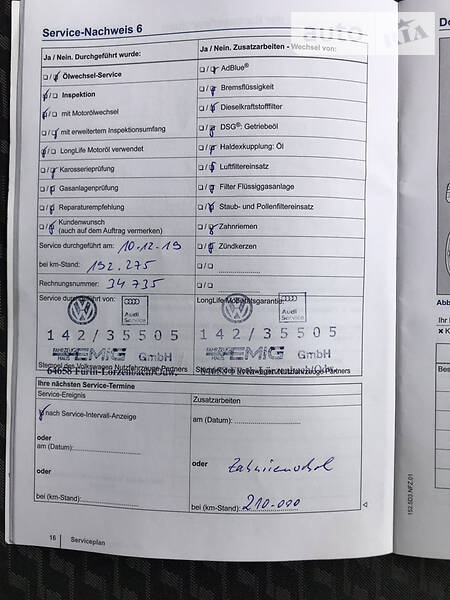 Service-Nachweis 6
Ja / Nein. Durchgeführt wurde:
Ölwechsel-Service
Inspektion
mit Motorölwechsel
mit erweitertem Inspektionsumfang
LongLife Motoröl verwendet
Karosserieprüfung
Gasanlagenprüfung
Reparaturempfehlung
Kundenwunsch
(auch auf dem Auftrag vermerken)
Service durchgeführt am: 10.12.19
bei km-Stand: 192.275
Rechnungsnummer: 34 735
Service durchgeführt von:
Audi
Service
142/35505
FAHRZEUG
HAUS EMIG GmbH
Stempel des Volkswagen Nutzfahrzeuge Partners
64658 Fürth-Lörzenbach/Odw.
Ja / Nein. Zusatzarbeiten - Wechsel von:
AdBlue®
Bremsflüssigkeit
Dieselkraftstofffilter
DSG®: Getriebeöl
Haldexkupplung: Öl
Luftfiltereinsatz
Filter Flüssiggasanlage
Staub- und Pollenfiltereinsatz
Zahnriemen
Zündkerzen
LongLife Mobilitätsgarantie:
Audi
Service
142/35505
EMIG GmbH
Ihre nächsten Service-Termine
Service-Ereignis
nach Service-Intervall-Anzeige
oder
am (Datum):
oder
bei (km-Stand):
Zusatzarbeiten
am (Datum):
oder
bei (km-Stand): 210.000
16 Serviceplan
152.5D3.NFZ.01
auto
RIA
Do
Abb
Ihr
Bes